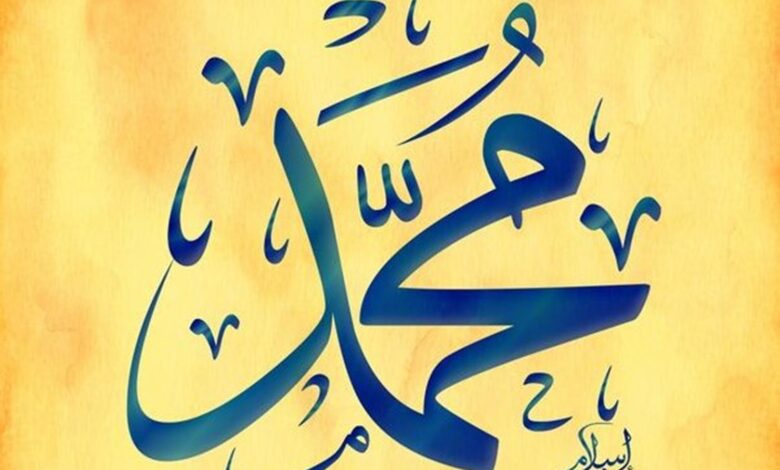 مُحَمَّد
إسلام